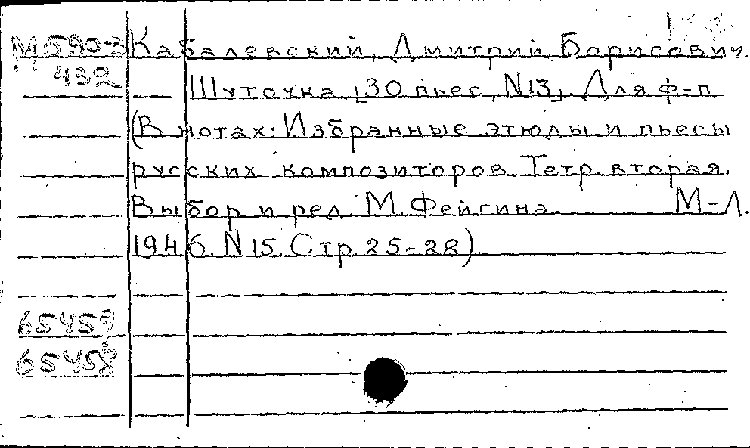 М 590-3 Кабалевский, Дмитрий Борисович.
432 Шуточка, [30 пьес, N13], Для ф-п
(В нотах: Избранные этюды и пьесы
русских композиторов. Тетр. вторая.
Выбор и ред. М. Фейгина. М-Л.
1946. N 15. Стр. 25-28)
65459
65458